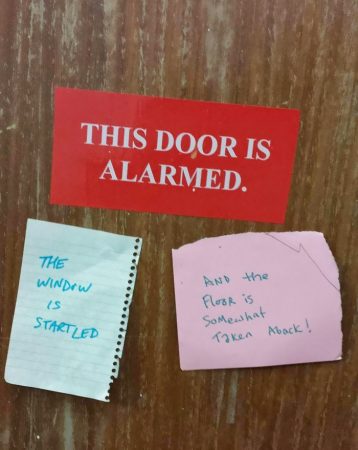 THIS DOOR IS
ALARMED.
THE
WINDOW
IS
STARTLED
AND the
FLOOR is
Somewhat
Taken Aback!